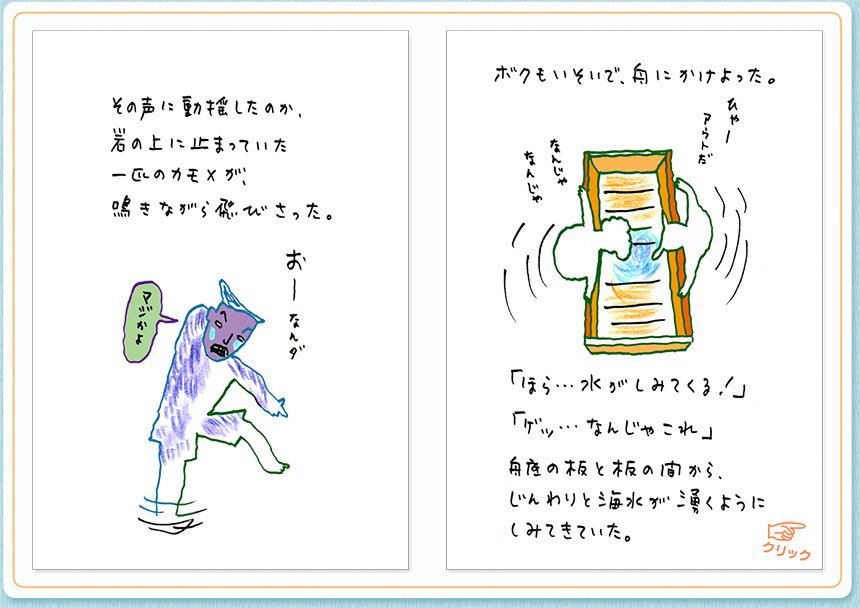 その声に動揺したのか、
岩の上に止まっていた
一匹のカモメが、
鳴きながら飛びさった。
おーなんダ
マジかよ
ボクもいそいで、舟にかけよった。
ひゃー
アウトだ
なんじゃ
なんじゃ
「ほら…水がしみてくる!」
「ゲッ…なんじゃこれ」
舟底の板と板の間から、
じんわりと海水が湧くように
しみてきていた。
クリック